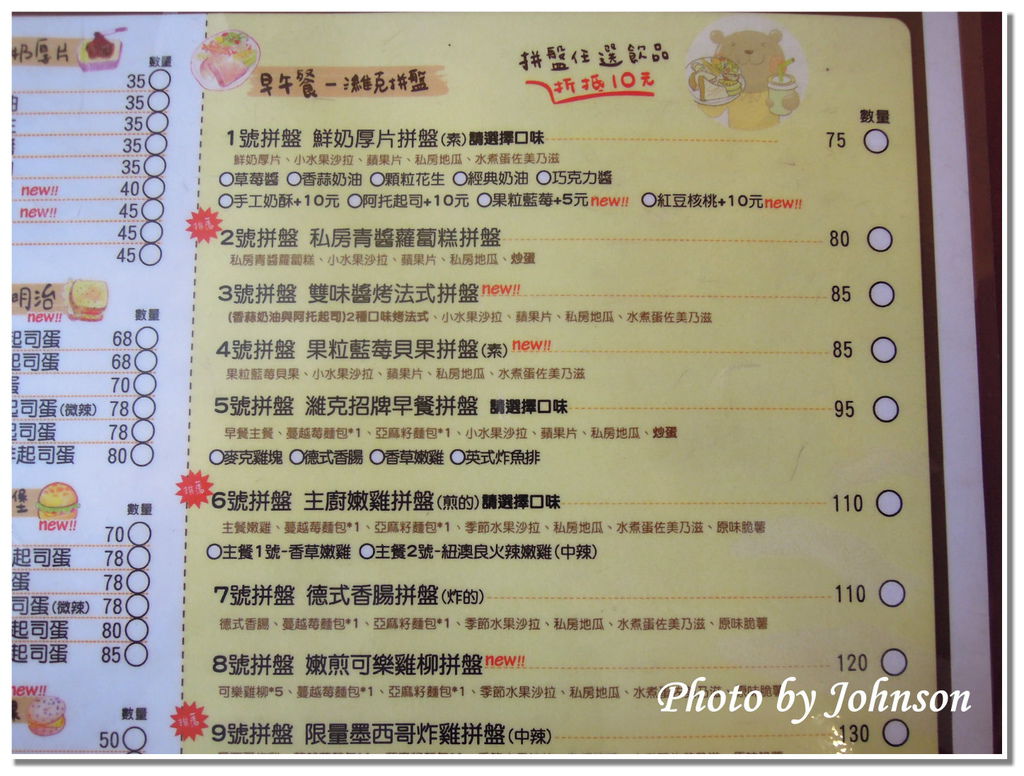 奶厚片
數量
35
35
35
35
35
new!! 40
new!! 45
45
45
明治
new!!
數量
起司蛋 68
起司蛋 68
蛋 70
起司蛋(微辣) 78
起司蛋 78
起司蛋 80
堡
new!!
數量
70
起司蛋 78
蛋 78
司蛋(微辣) 78
起司蛋 80
起司蛋 85
new!!
數量
50
早午餐-濰克拼盤
拼盤任選飲品
折抵10元
數量
1號拼盤 鮮奶厚片拼盤(素)請選擇口味 75
鮮奶厚片、小水果沙拉、蘋果片、私房地瓜、水煮蛋佐美乃滋
草莓醬 香蒜奶油 顆粒花生 經典奶油 巧克力醬
手工奶酥+10元 阿托起司+10元 果粒藍莓+5元new!! 紅豆核桃+10元new!!
推薦
2號拼盤 私房青醬蘿蔔糕拼盤 80
私房青醬蘿蔔糕、小水果沙拉、蘋果片、私房地瓜、炒蛋
3號拼盤 雙味醬烤法式拼盤new!! 85
(香蒜奶油與阿托起司)2種口味烤法式、小水果沙拉、蘋果片、私房地瓜、水煮蛋佐美乃滋
4號拼盤 果粒藍莓貝果拼盤(素)new!! 85
果粒藍莓貝果、小水果沙拉、蘋果片、私房地瓜、水煮蛋佐美乃滋
5號拼盤 濰克招牌早餐拼盤 請選擇口味 95
早餐主餐、蔓越莓麵包*1、亞麻籽麵包*1、小水果沙拉、蘋果片、私房地瓜、炒蛋
麥克雞塊 德式香腸 香草嫩雞 英式炸魚排
推薦
6號拼盤 主廚嫩雞拼盤(煎的)請選擇口味 110
主餐嫩雞、蔓越莓麵包*1、亞麻籽麵包*1、季節水果沙拉、私房地瓜、水煮蛋佐美乃滋、原味脆薯
主餐1號-香草嫩雞 主餐2號-紐澳良火辣嫩雞(中辣)
7號拼盤 德式香腸拼盤(炸的) 110
德式香腸、蔓越莓麵包*1、亞麻籽麵包*1、季節水果沙拉、私房地瓜、水煮蛋佐美乃滋、原味脆薯
8號拼盤 嫩煎可樂雞柳拼盤new!! 120
可樂雞柳*5、蔓越莓麵包*1、亞麻籽麵包*1、季節水果沙拉、私房地瓜、水煮蛋佐美乃滋、原味脆薯
推薦
9號拼盤 限量墨西哥炸雞拼盤(中辣) 130
Photo by Johnson